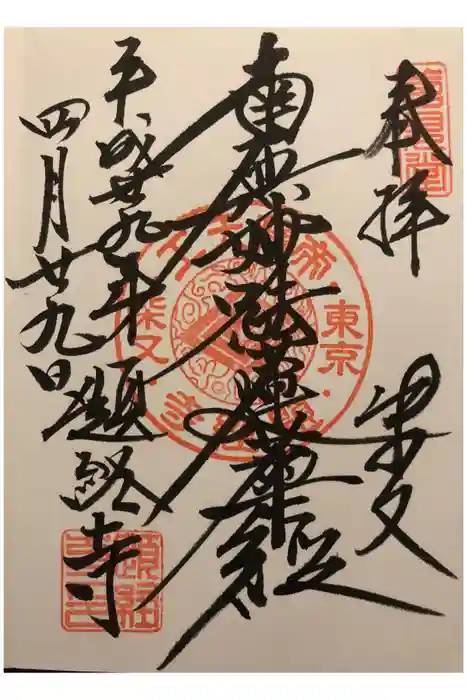 奉拝
柴又
南無妙法蓮華經
平成廿九年 題経寺
四月廿九日
東京
柴又